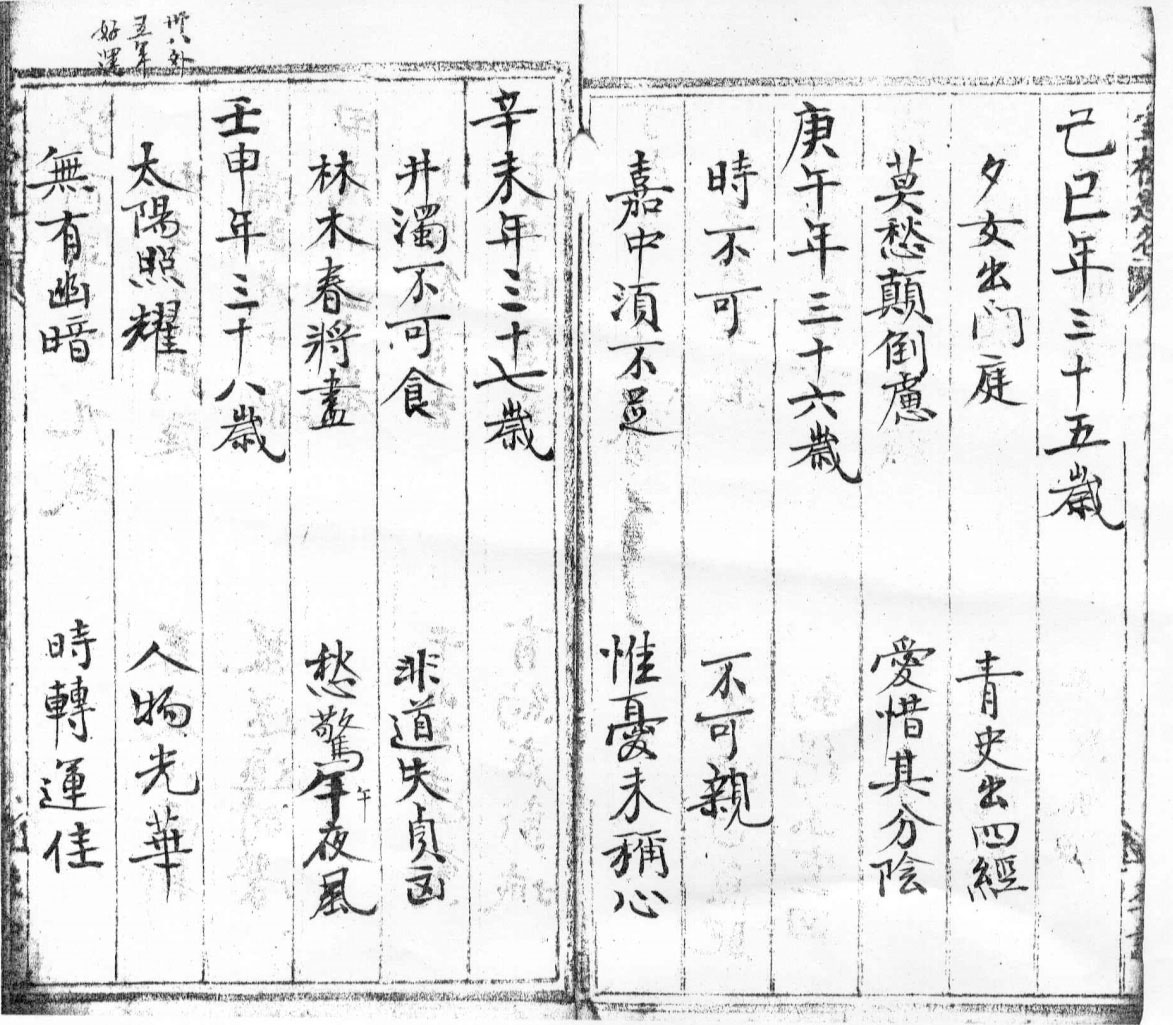 己巳年三十五歲
夕女出門庭 青史出四經
莫愁顛倒慮 愛惜其分陰
庚午年三十六歲
時不可 不可親
嘉中須不足 惟憂未稱心
辛未年三十七歲
井濁不可食 非道失貞凶
林木春將盡 愁驚午夜風
午
壬申年三十八歲
太陽照耀 人物光華
無有幽暗 時轉運佳
卅八外
五年
好運